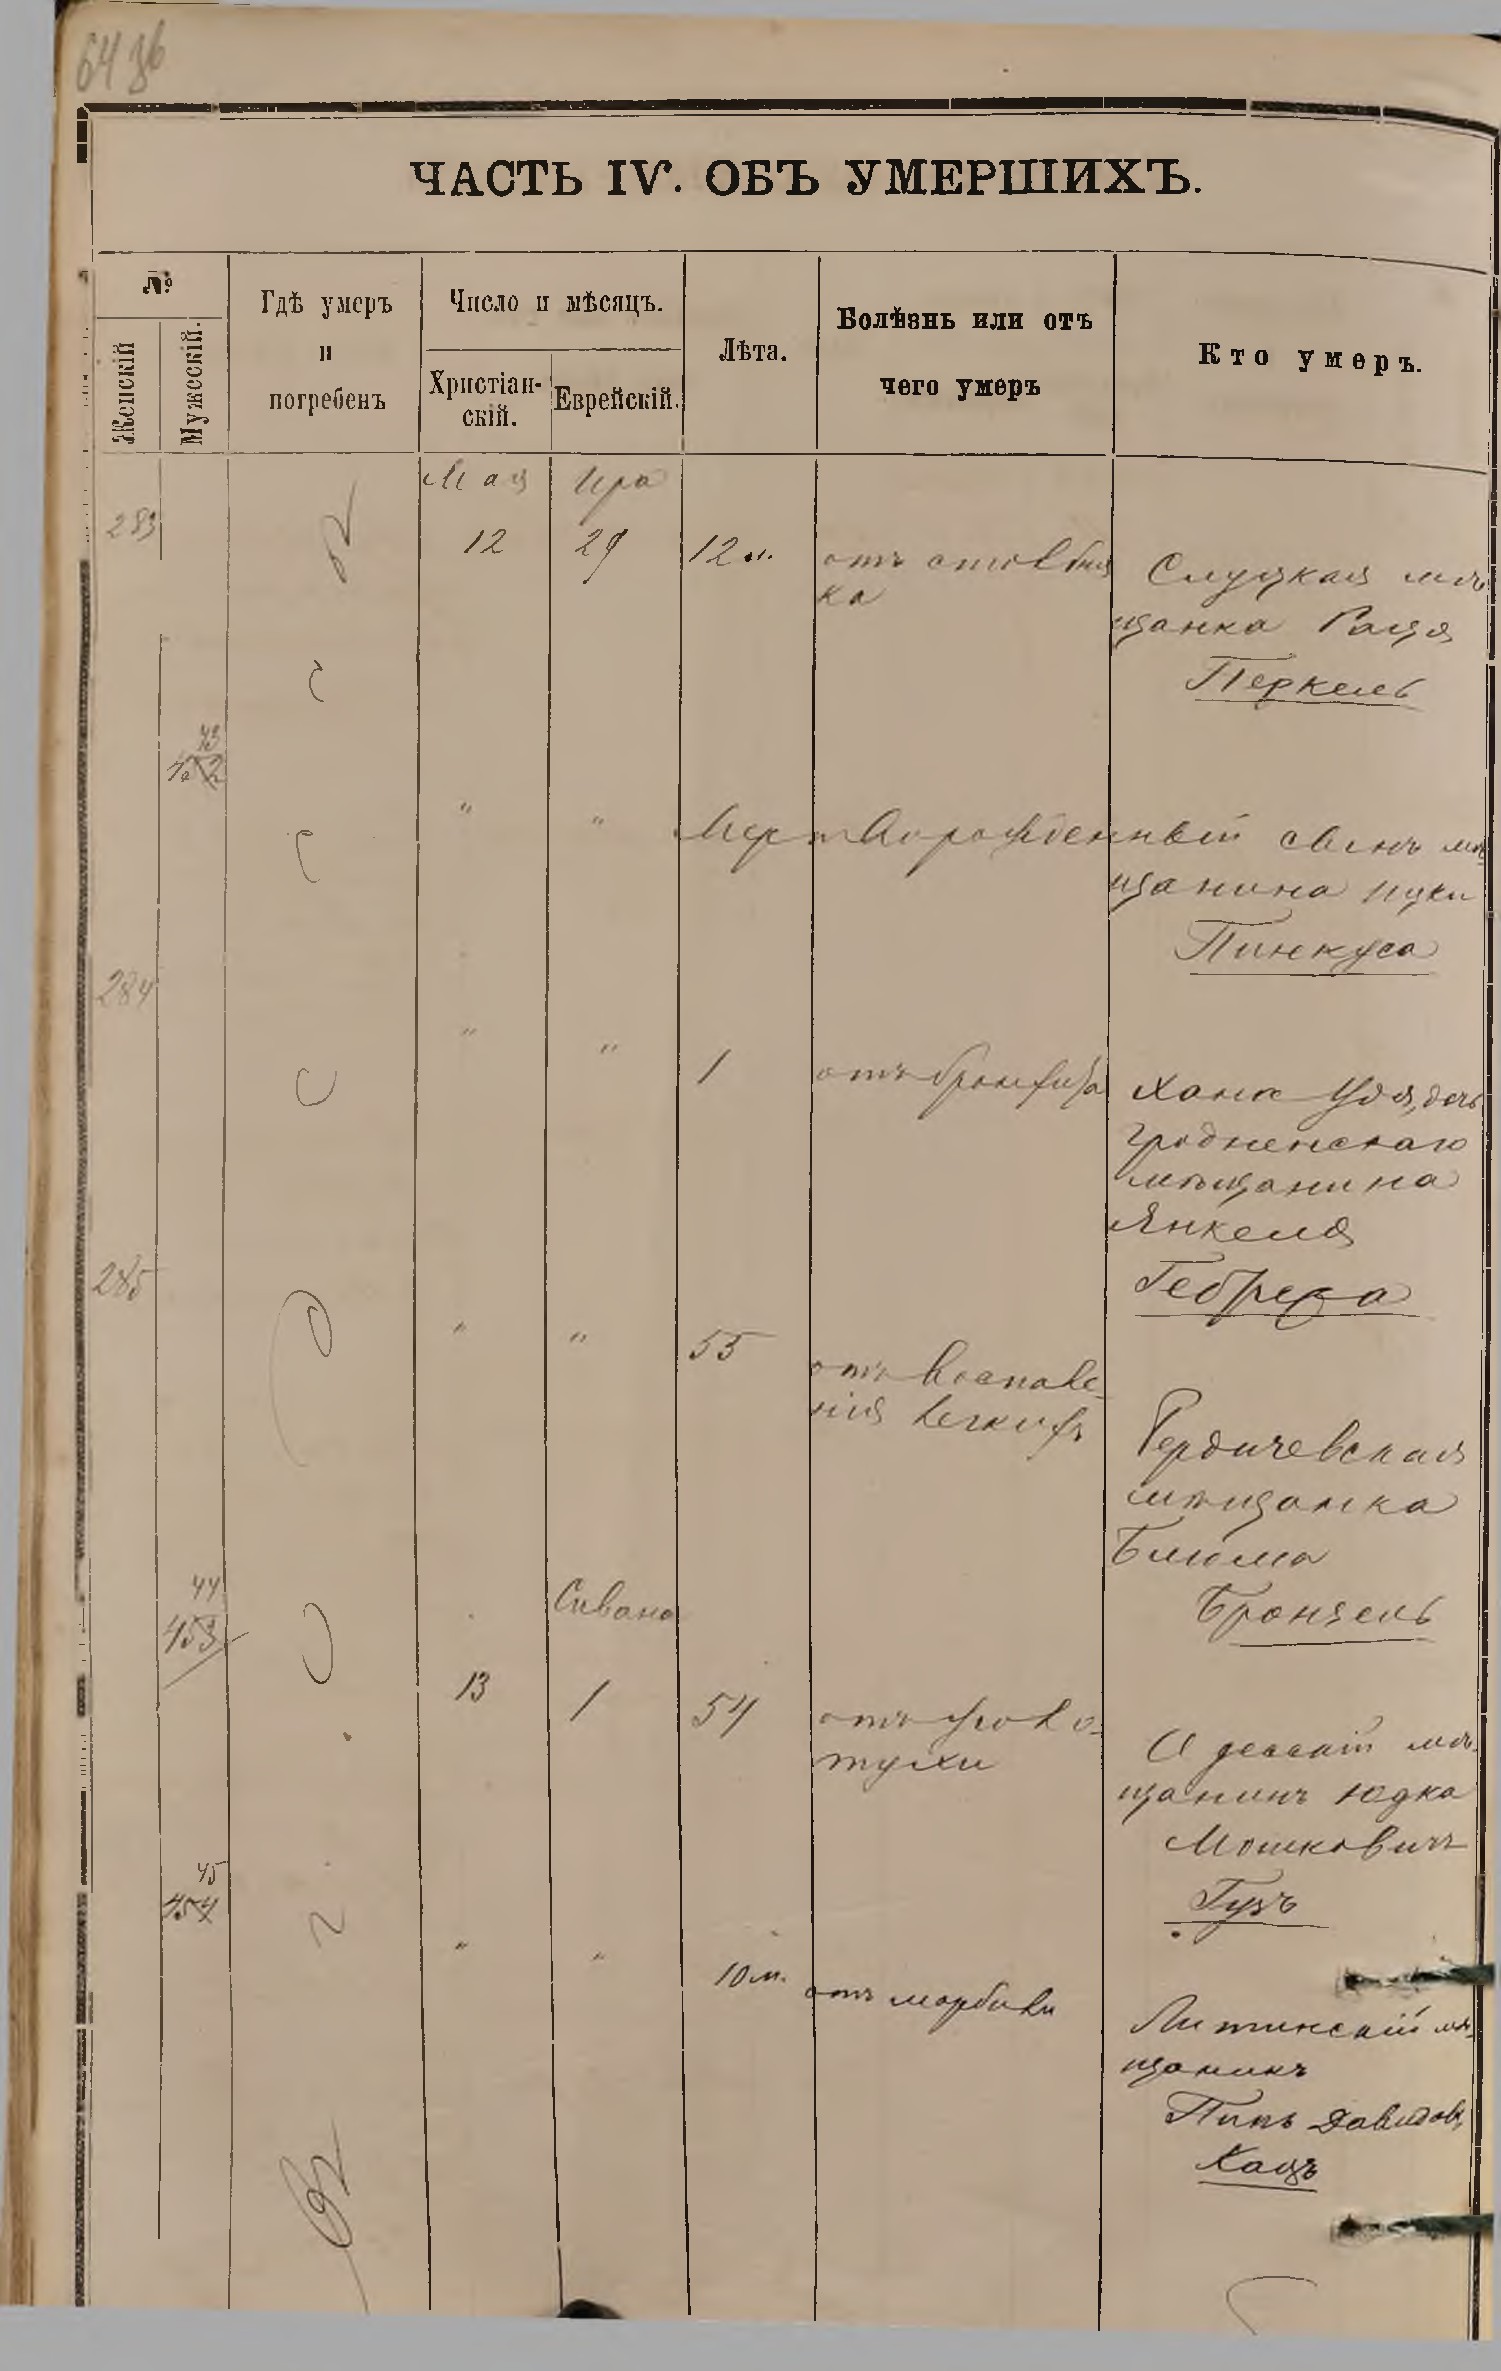 ЧАСТЬ IV. ОБЪ УМЕРШИХЪ.
№
Женскій
Мужескій.
Гдѣ умеръ
и
погребенъ
Число и мѣсяцъ.
Христіан-
скій.
Еврейскій.
Лѣта.
Болѣзнь или отъ
чего умеръ
Кто умеръ.
въ Одессѣ
Мая Ира
283 12 29 12 м. отъ столбня
ка
Слуцкая мѣ
щанка
Перкель
43
452
" " Мерворожденный сынъ мѣ
щанина Ицки
Пинкуса
284
" " 1 отъ бронхита
Хана Удя, дочь
гродненскаго
мѣщанина
Янкеля
285
" " 55 отъ воспале-
нія легкихъ
Бердичевская
мѣщанка
Блюма
Бронзель
44
453
Сивана
13 1 54 отъ
Одесскій мѣ-
щанинъ Юдка
Мошковичъ
Гузъ
45
454
" " 10 м. отъ
Литинскій мѣ-
щанинъ
Давидовъ
Кацъ